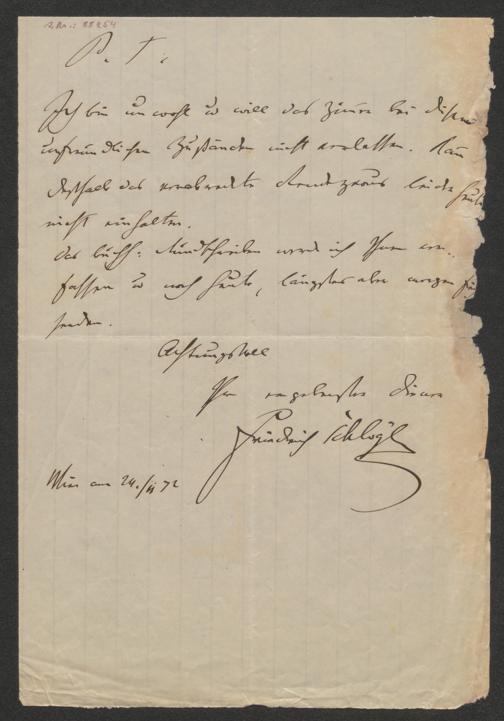 P. T.
Ich bin unwohl u will das Zimmer bei diesen
unfreundlichen Zuständen nicht verlassen. Kann
deßhalb das verabredete Rendezvous leider heute
nicht einhalten.
Das buchh. Rundschreiben werde ich Ihnen ver-
fassen u noch heute, längstens aber morgen früh
senden.
Achtungsvoll
Ihr ergebenster Diener
Friedrich Schlögl
Wien am 24./II 72